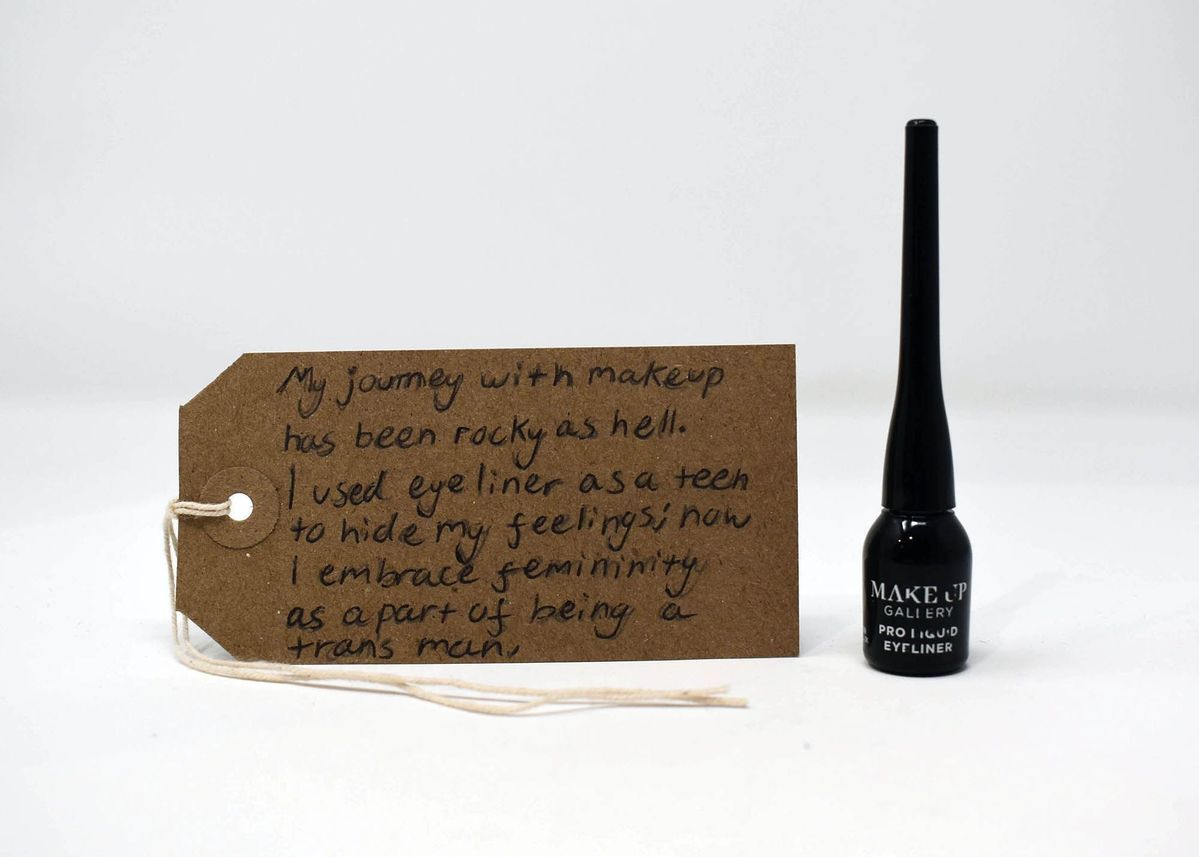 My journey with makeup
has been rocky as hell.
I used eyeliner as a teen
to hide my feelings; now
I embrace femininity
as a part of being a
trans man.
MAKE UP
GALLERY
PRO LIQUID
EYELINER